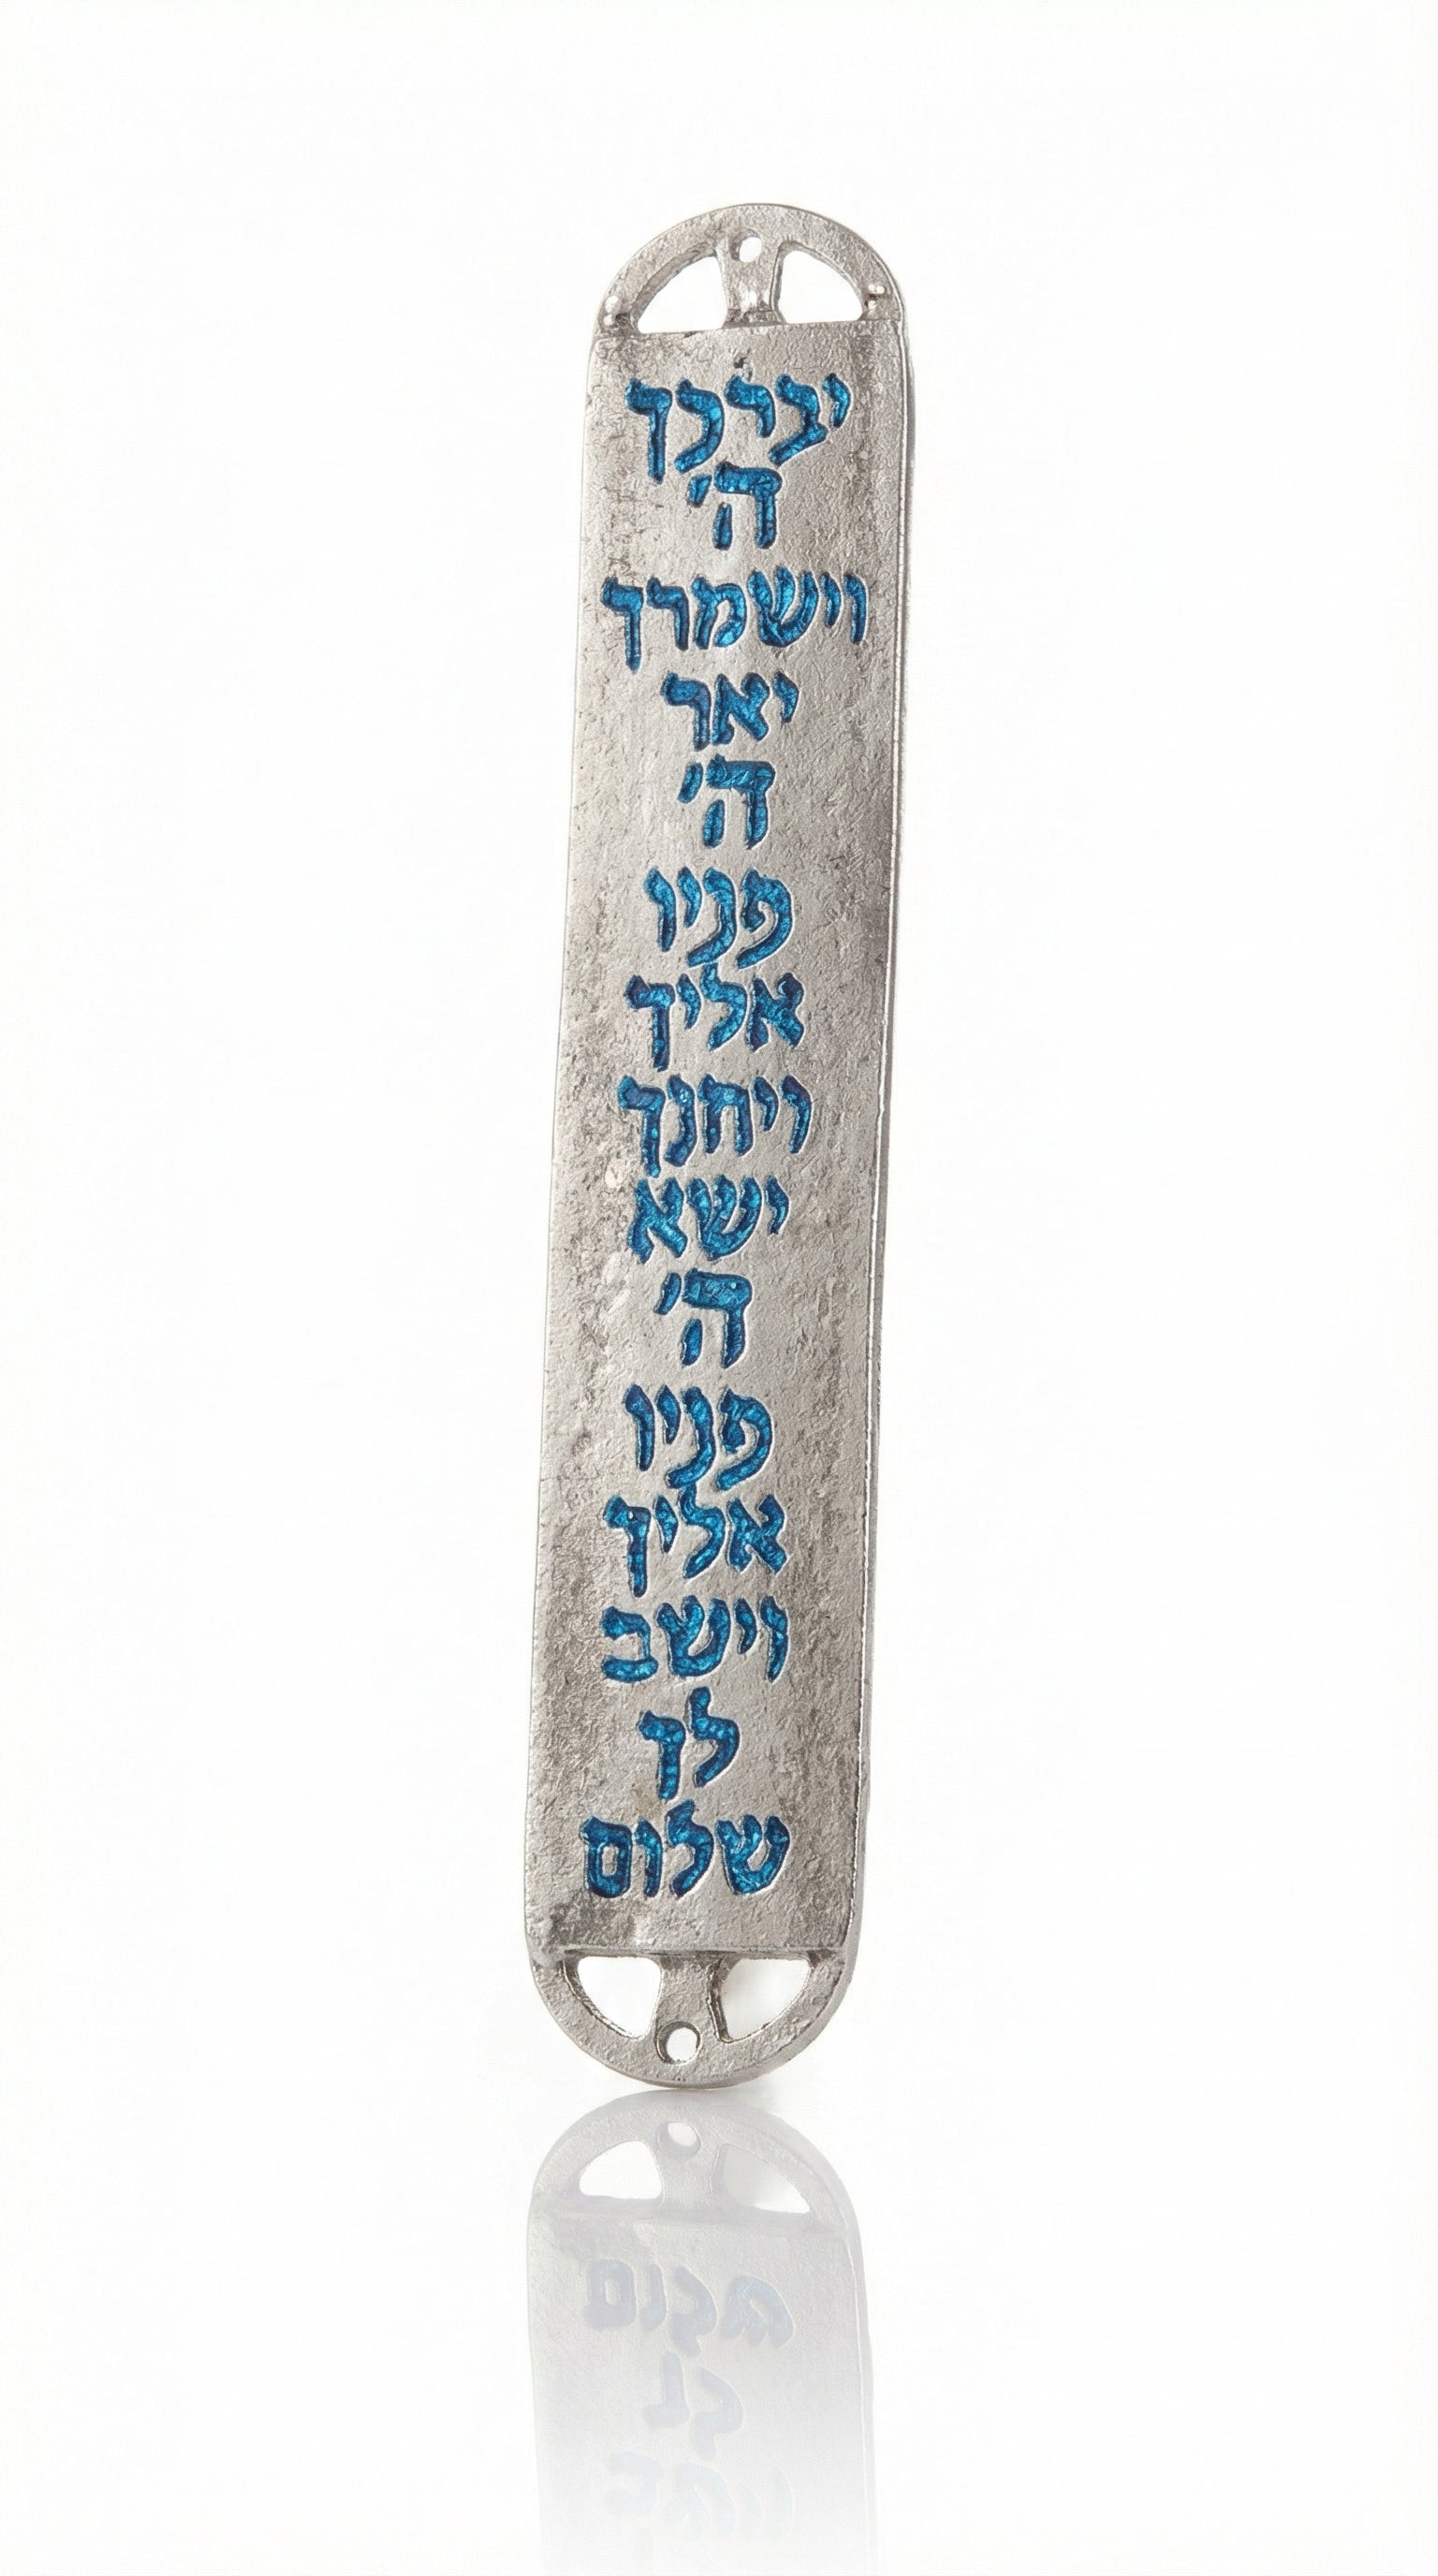 יברכך
ה'
וישמרך
יאר
ה'
פניו
אליך
ויחנך
ישא
ה'
פניו
אליך
וישב
לך
שלום